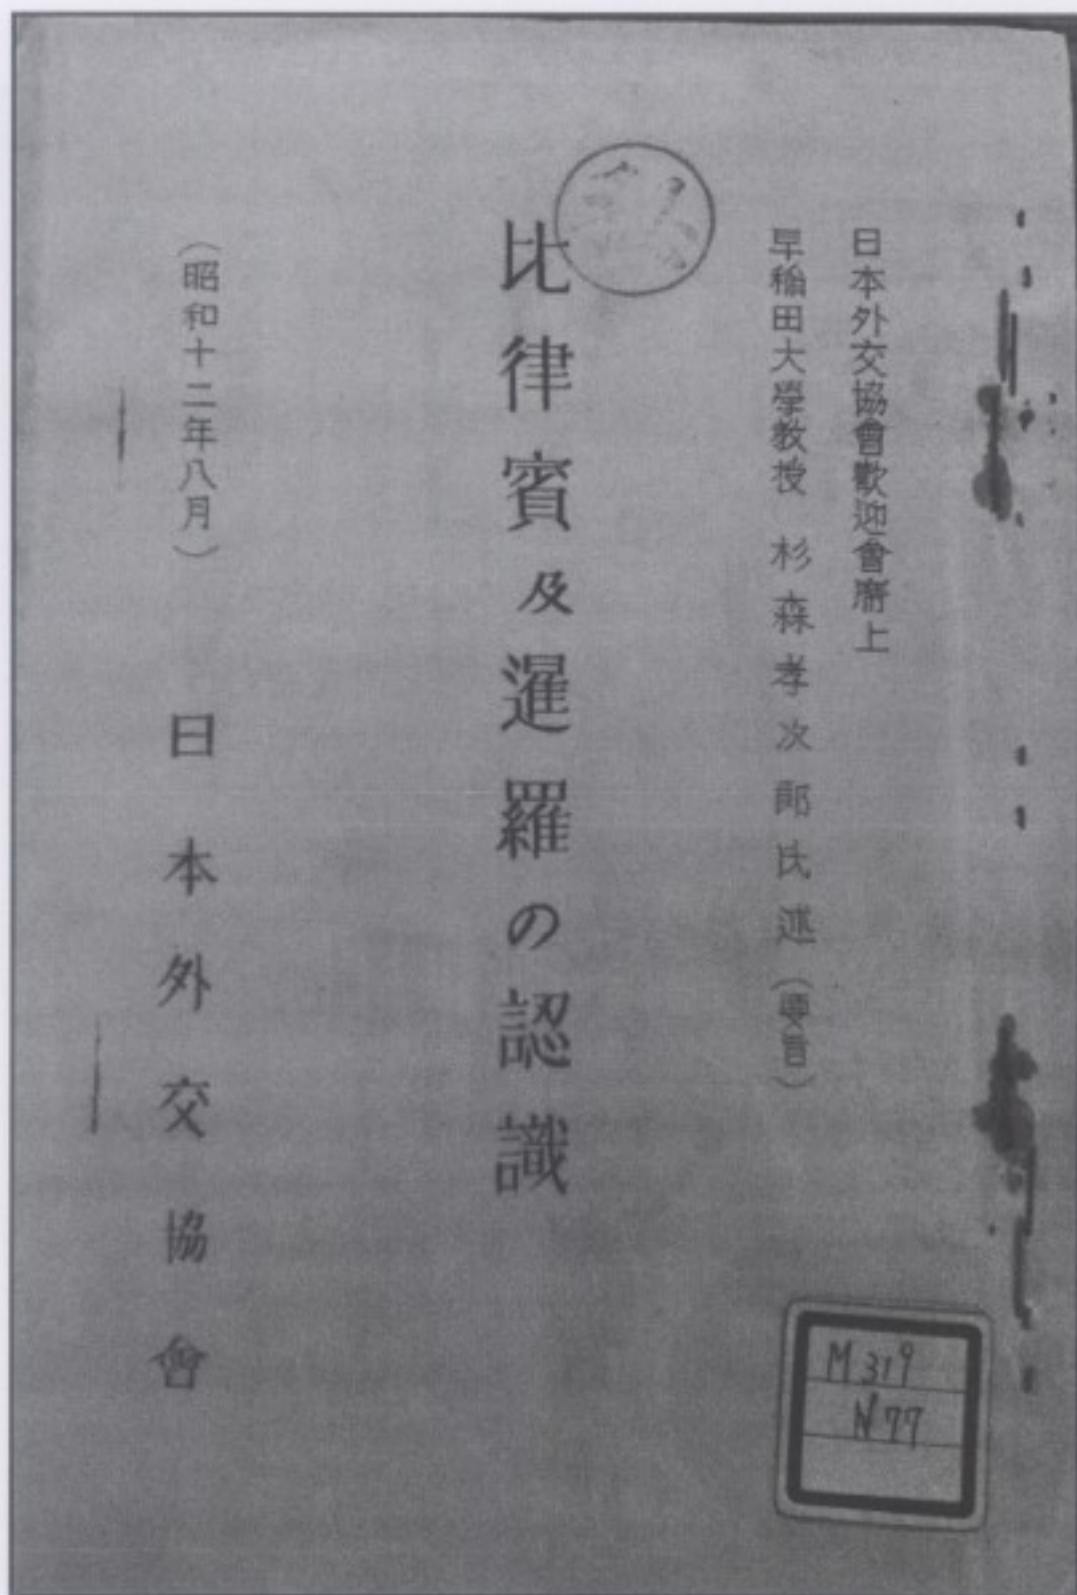 日本外交協會歡迎會席上
早稲田大學教授 杉森孝次郎氏述（要旨）
比律賓及暹羅の認識
（昭和十二年八月） 日本外交協會
M319
N77